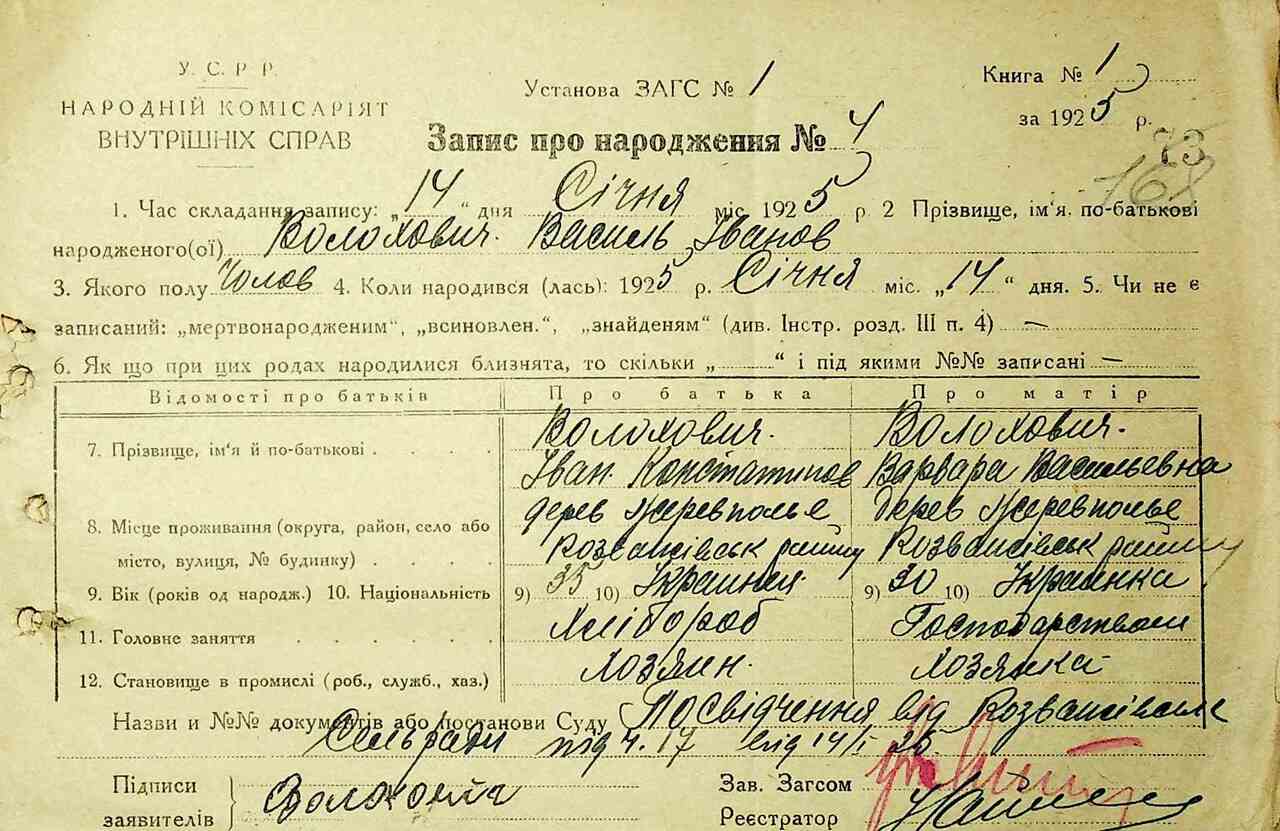 У. С. Р. Р.
НАРОДНІЙ КОМІСАРІЯТ
ВНУТРІШНІХ СПРАВ
Установа ЗАГС № 1
Книга № 1
за 1925 р.
Запис про народження № 4
73
168
1. Час складання запису: „14“ дня Січня міс. 1925 р. 2 Прізвище, ім'я. по-батькові
народженого(ої) Волохович. Василь Іванов
3. Якого полу Чолов 4. Коли народився (лась): 1925 р. Січня міс. „14“ дня. 5. Чи не є
записаний: „мертвонародженим“, „всиновлен.“, „знайденям“ (див. Інстр. розд. III п. 4) —
6. Як що при цих родах народилися близнята, то скільки „ “ і під якими №№ записані —
Відомості про батьків Про батька Про матір
7. Прізвище, ім'я й по-батькові Волохович. Волохович.
Іван Варвара Васильевна
8. Місце проживання (округа, район, село або дерев дерев
місто, вулиця, № будинку) району району
9. Вік (років од народж.) 10. Національність 9) 35 10) 9) 30 10) Украинка
11. Головне заняття Хлібороб
12. Становище в промислі (роб., служб., хаз.) Хозяин. Хозяйка
Назви и №№ документів або постанови Суду Посвідчення від
Сельради під ч. 17 від 14/I 25
Підписи
заявителів
Зав. Загсом
Реєстратор